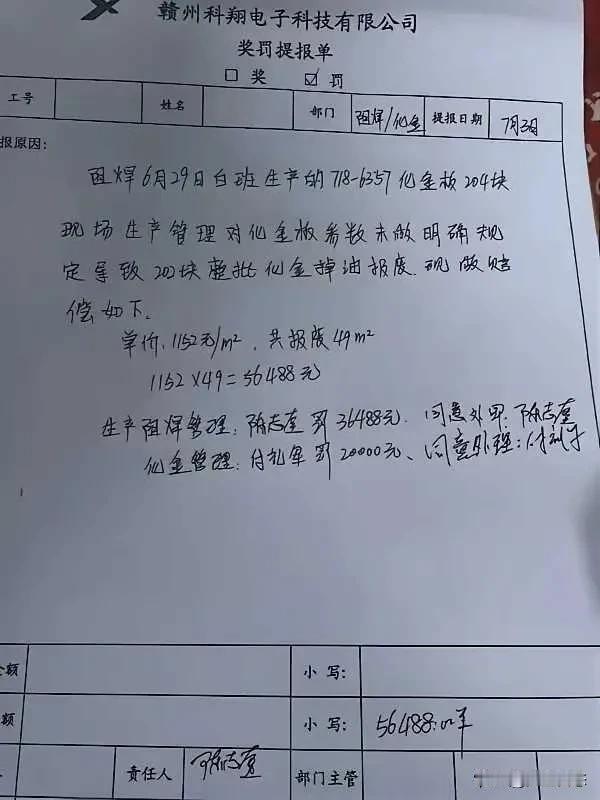 赣州科翔电子科技有限公司
奖罚提报单
☐ 奖 ☑ 罚
工号 姓名 部门 阻焊/化金 提报日期 7月3日
报原因:
阻焊6月29日白班生产的718-6357化金板204块
现场生产管理对化金板参数未做明确规
定导致202块整批化金掉油报废.现做赔
偿如下.
单价.1152元/m².共报废49m²
1152×49=56488元
生产阻焊管理:陈志奎 罚36488元.同意处理:陈志奎
化金管理:付礼军 罚20000元、同意处理:
金额 小写:
额 小写: 56488.
责任人 陈志奎 部门主管